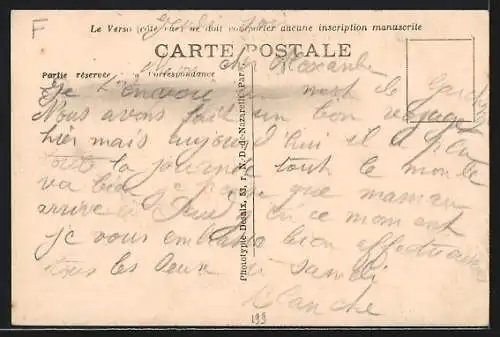 F
Jeudi soir
Le Verso (côté vue) ne doit comporter aucune inscription manuscrite
CARTE POSTALE
Partie réservée à la Correspondance
cher Alexandre
Je t'envoie un mot de
Nous avons fait un bon voyage
hier mais aujourd'hui il a plu
toute la journée tout le monde
va bien je pense que maman
arrive à ce moment
je vous embrasse bien affectueusement
tous les deux à samedi
Blanche
Phototypie Desaix, 53, r. N.-D.-de-Nazareth, Par
199